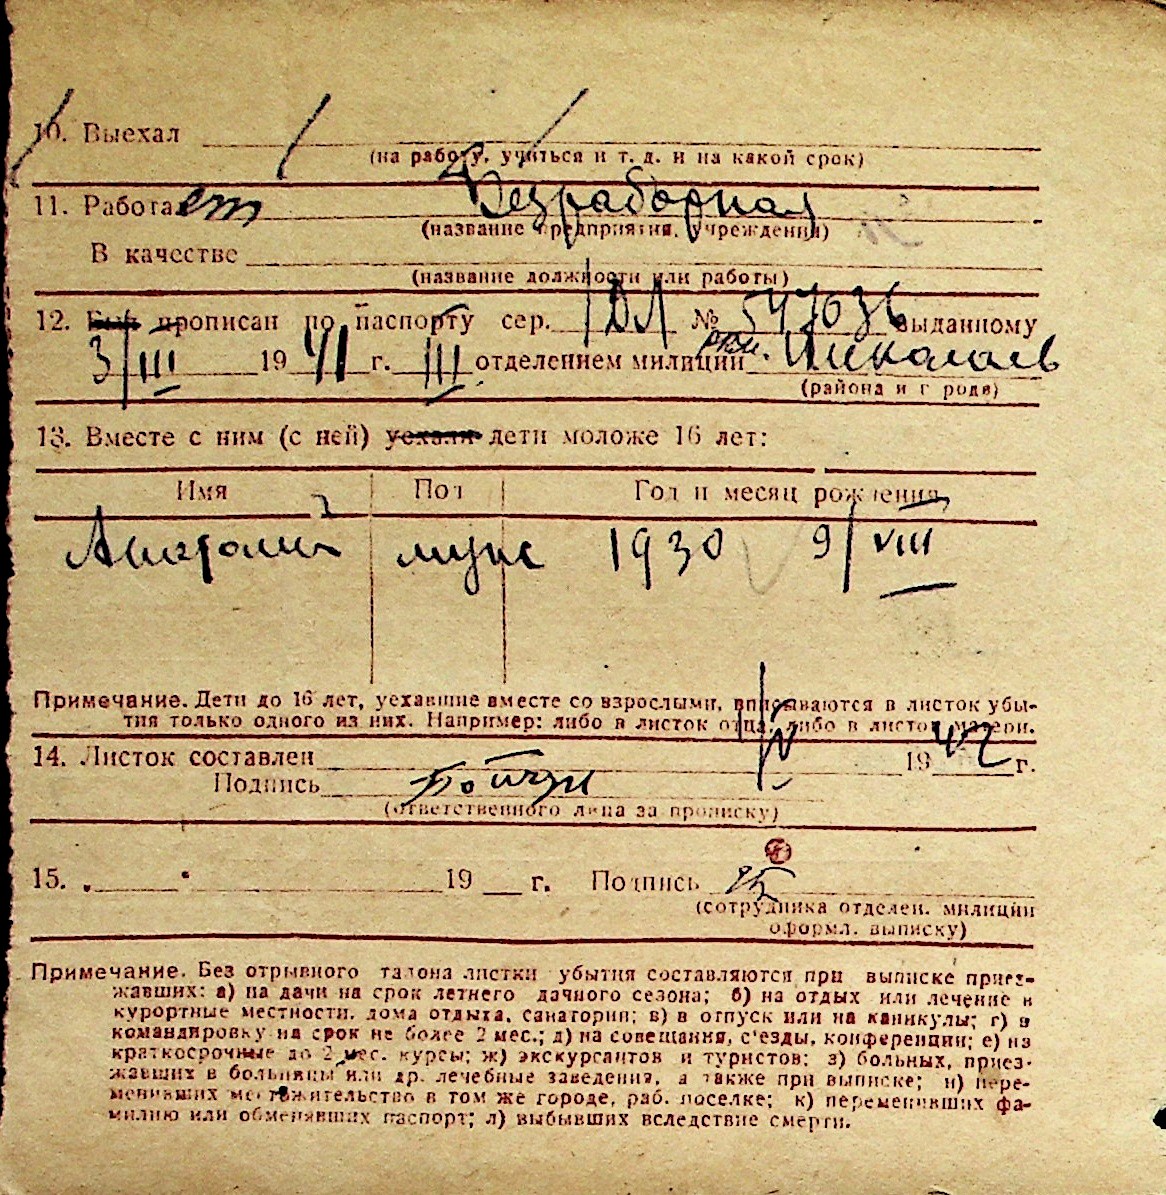 10. Выехал
(на работу, учиться и т. д. и на какой срок)
11. Работает Безработная
(название предприятия, учреждения)
В качестве
(название должности или работы)
12. Был прописан по паспорту сер. ДЛ № 547036 выданному
3/III 1941 г. III отделением милиции
(района и города)
13. Вместе с ним (с ней) уехали дети моложе 16 лет:
Имя Пол Год и месяц рождения
Анатолий муж 1930 9/VIII
Примечание. Дети до 16 лет, уехавшие вместе со взрослыми, вписываются в листок убы-
тия только одного из них. Например: либо в листок отца, либо в листок матери.
14. Листок составлен 1942 г.
Подпись
(ответственного лица за прописку)
15. 19 г. Подпись
(сотрудника отделен. милиции
оформл. выписку)
Примечание. Без отрывного талона листки убытия составляются при выписке приез-
жавших: а) на дачи на срок летнего дачного сезона; б) на отдых или лечение в
курортные местности, дома отдыха, санатории; в) в отпуск или на каникулы; г) в
командировку на срок не более 2 мес.; д) на совещания, с'езды, конференции; е) на
краткосрочные до 2 мес. курсы; ж) экскурсантов и туристов; з) больных, приез-
жавших в больницы или др. лечебные заведения, а также при выписке; и) пере-
менивших местожительство в том же городе, раб. поселке; к) переменивших фа-
милию или обменявших паспорт; л) выбывших вследствие смерти.